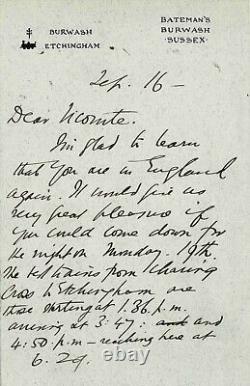 BURWASH
ETCHINGHAM
BATEMAN'S
BURWASH
SUSSEX
Sep. 16 —
Dear Vicomte.
I'm glad to learn
that you are in England
again. It would give us
very great pleasure if
you could come down for
the night on Monday. 19th.
The best trains from Charing
Cross to Etchingham are
those starting at 1.36 p.m.
arriving at 3.47: and and
4:50 p.m — reaching here at
6.29.